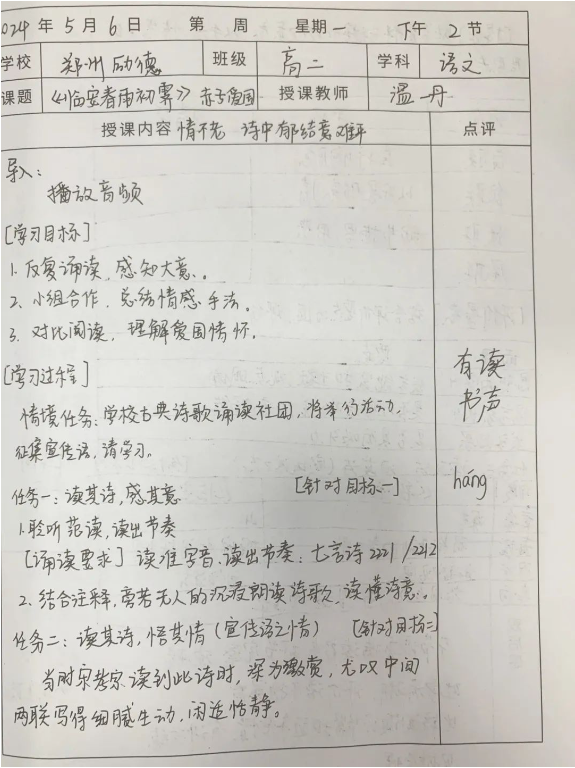 024 年 5 月 6 日 第 周 星期一 下午 2 节
学校 郑州励德 班级 高二 学科 语文
课题 《临安春雨初霁》赤子爱国 授课教师 温丹
授课内容 情不老 诗中郁结意难平 点评
导入：
播放音频
[学习目标]
1. 反复诵读，感知大意。
2. 小组合作，总结情感手法。
3. 对比阅读，理解爱国情怀。
[学习过程]
有读
书声
情境任务：学校古典诗歌诵读社团，将举行活动，
征集宣传语，请学习。
任务一：读其诗，感其意 [针对目标一]
háng
1. 聆听范读，读出节奏
[诵读要求] 读准字音、读出节奏：七言诗 2221/2212
2. 结合注释，旁若无人的沉浸朗读诗歌，读懂诗意。
任务二：读其诗，悟其情（宣传语之情） [针对目标二]
当时宋孝宗读到此诗时，深为激赏，尤叹中间
两联写得细腻生动，闲适恬静。